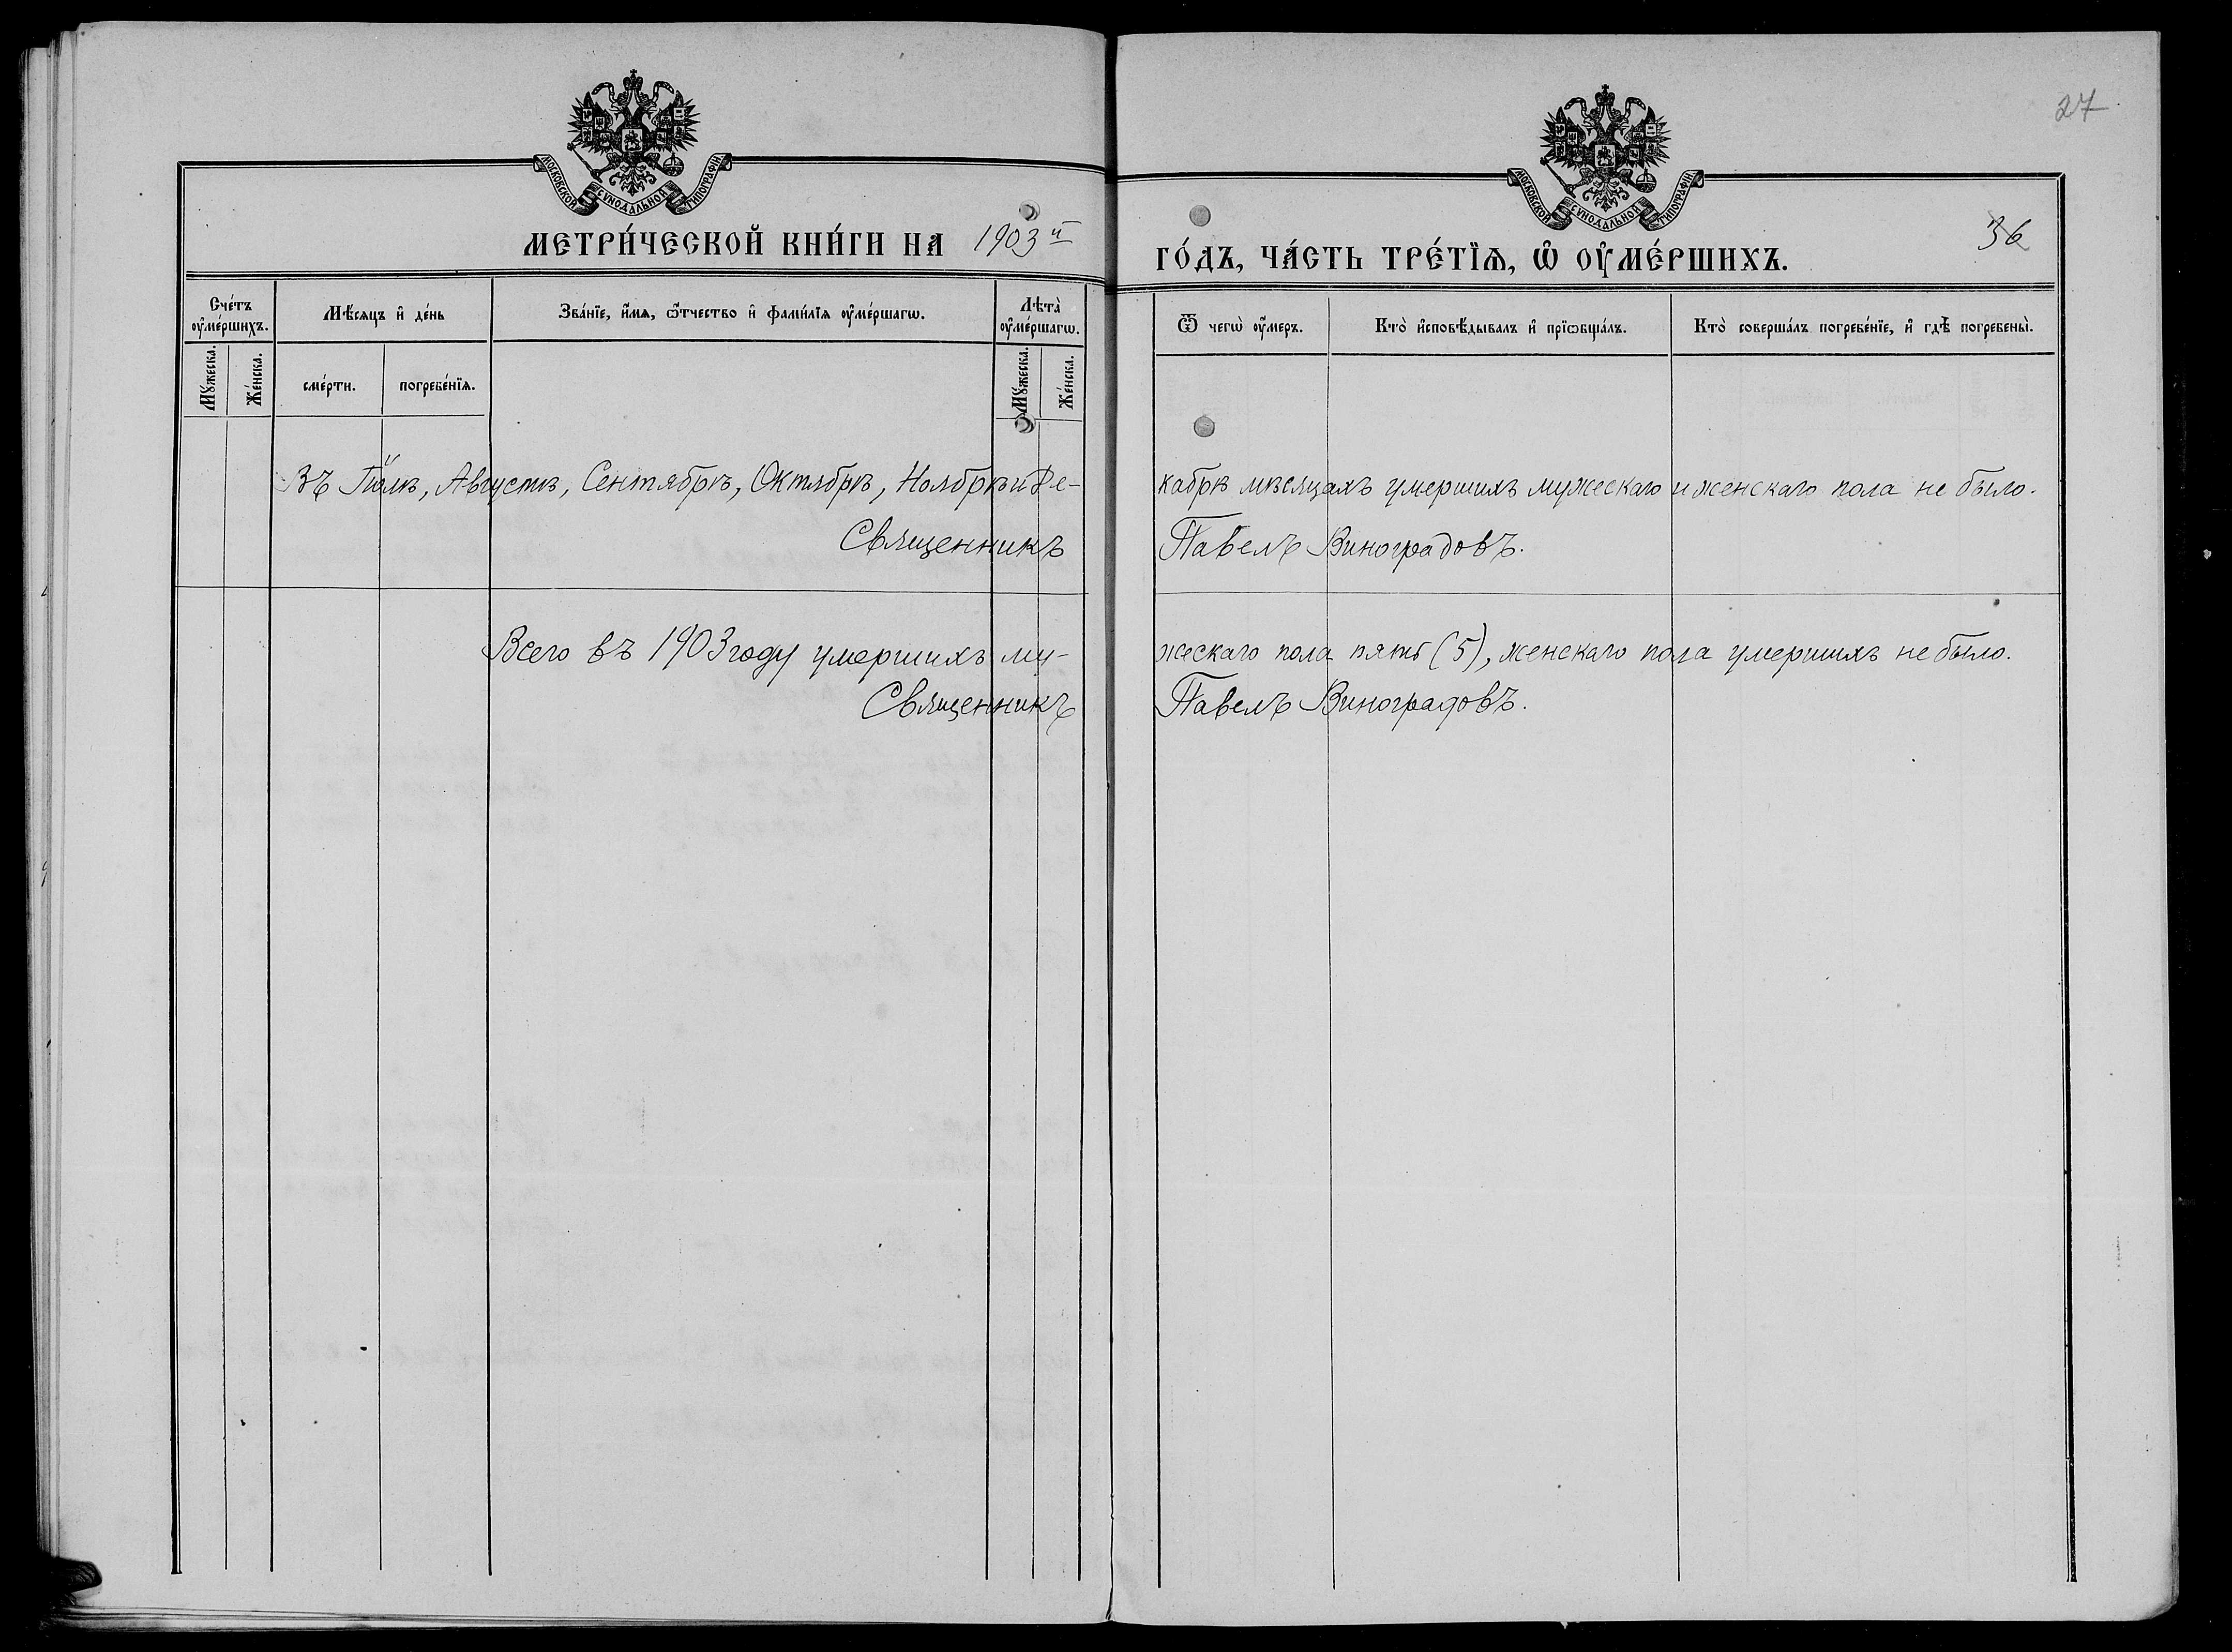 27
МОСКОВСКОЙ СѴНОДАЛЬНОЙ ТИПОГРАФІИ
МОСКОВСКОЙ СѴНОДАЛЬНОЙ ТИПОГРАФІИ
36
МЕТРИ́ЧЕСКОЙ КНИ́ГИ НА 1903 й
ГО́ДЪ, ЧА́СТЬ ТРЕ́ТЇѦ, Ѡ҆ ОУ҆МЕ́РШИХЪ.
Сче́тъ оу҆ме́ршихъ.
Мѣ́сяцъ и҆ де́нь
Зва́нїе, и҆́мѧ, ѻ҆́тчество и҆ фами́лїѧ оу҆ме́ршагѡ.
Лѣ́та̀ оу҆ме́ршагѡ.
Ѿ чегѡ̀ оу҆́меръ.
Кто̀ и҆сповѣ́дывалъ и҆ прїѻбща́лъ.
Кто̀ соверша́лъ погребе́нїе, и҆ гдѣ̀ погребены̀.
Мꙋ́жеска.
Же́нска.
сме́рти.
погребе́нїѧ.
Мꙋ́жеска.
Же́нска.
Въ Іюлѣ, Августѣ, Сентябрѣ, Октябрѣ, Ноябрѣ и Де-
кабрѣ мѣсяцахъ умершихъ мужескаго и женскаго пола не было.
Священникъ
Павелъ Виноградовъ.
Всего въ 1903 году умершихъ му-
жескаго пола пять (5), женскаго пола умершихъ не было.
Священникъ
Павелъ Виноградовъ.